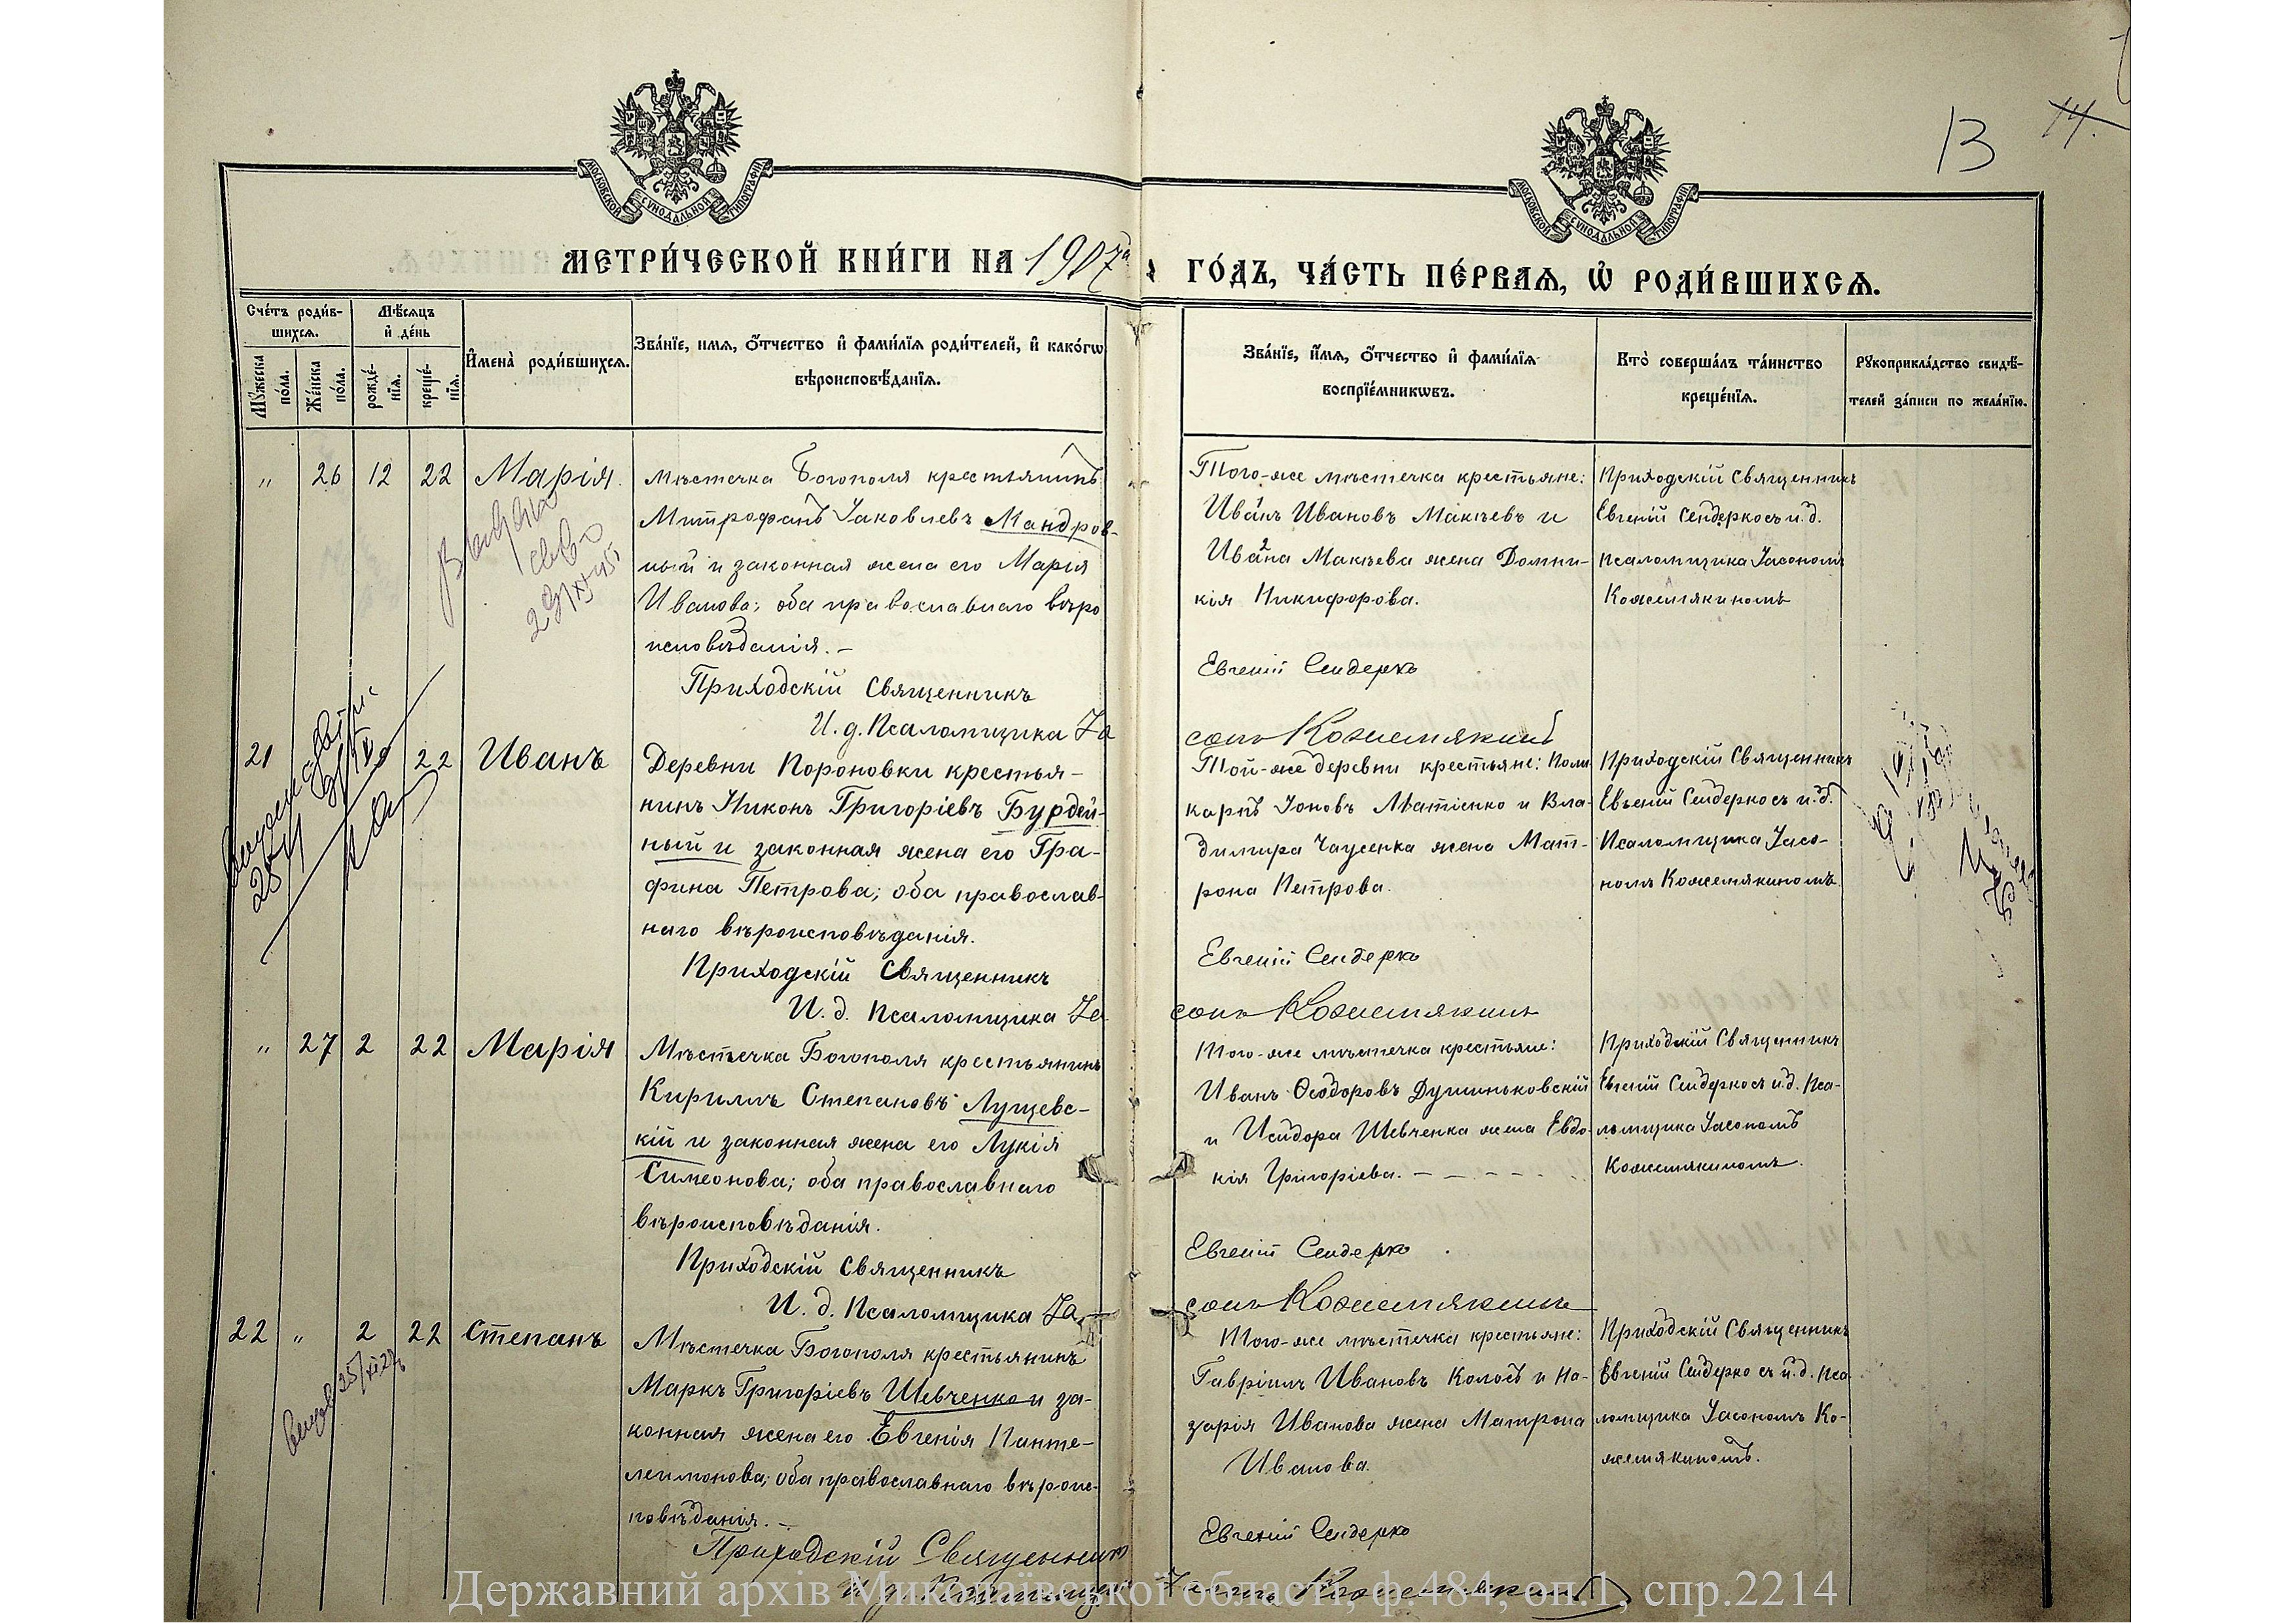 13
14.
МОСКОВСКОЙ СѴНОДАЛЬНОЙ ТИПОГРАФІИ
МОСКОВСКОЙ СѴНОДАЛЬНОЙ ТИПОГРАФІИ
МЕТРИ́ЧЕСКОЙ КНИ́ГИ НА 1907 ГО́ДЪ, ЧА́СТЬ ПЕ́РВАЯ, Ѡ҆ РОДИ́ВШИХСѦ.
Сче́тъ роди́в-
шихсѧ.
Мꙋ́жеска по́ла.
Же́нска по́ла.
Мѣ́сѧцъ
и҆ де́нь
рожде́-
нїѧ.
креще́-
нїѧ.
И҆мена̀ роди́вшихсѧ.
Зва́нїе, и́мѧ, ѻ҆́тчество и҆ фами́лїѧ роди́телей, и҆ како́гѡ
вѣроисповѣ́данїѧ.
Зва́нїе, и́мѧ, ѻ҆́тчество и҆ фами́лїѧ
воспрїе́мникѡвъ.
Кто̀ соверша́лъ та́инство
креще́нїѧ.
Рꙋкоприкла́дство свидѣ́-
телей за́писи по жела́нїю.
„ 26 12 22 Марія.
мѣстечка Богополя крестьянинъ
Митрофанъ Іаковлевъ Мандров-
ный и законная жена его Марія
Иванова; оба православнаго вѣро
исповѣданія. –
Приходскій Священникъ
И. д. Псаломщика Іа
Того-же мѣстечка крестьяне:
Иванъ Ивановъ Макѣевъ и
Ивана Макѣева жена Домни-
кія Никифорова.
Евгеній Сендерко
сонъ Кожемякинъ
Приходскій Священникъ
Евгеній Сендеркосъ и. д.
псаломщика Іасономъ
Кожемякиномъ
21 22 Иванъ
Деревни Пороновки крестья-
нинъ Никонъ Григоріевъ Бурдей-
ный и законная жена его Гра-
фина Петрова; оба православ-
наго вѣроисповѣданія.
Приходскій Священникъ
И. д. Псаломщика Іа
Той-же деревни крестьяне: Поли
карпъ Іоновъ Матіенко и Вла-
димира Чаусенка жена Мат-
рона Петрова.
Евгеній Сендерко
сонъ Кожемякинъ
Приходскій Священникъ
Евгеній Сендеркосъ и. д.
Псаломщика Іасо-
номъ Кожемякиномъ
„ 27 2 22 Марія
Мѣстечка Богополя крестьянинъ
Кириллъ Степановъ Лущевс-
кій и законная жена его Лукія
Симеонова; оба православнаго
вѣроисповѣданія.
Приходскій Священникъ
И. д. Псаломщика Іа
Того-же мѣстечка крестьяне:
Иванъ Ѳеодоровъ Душиньковскій
и Исидора Шевченка жена Евдо-
кія Григоріева. – – – –
Евгеній Сендерко
сонъ Кожемякинъ
Приходскій Священникъ
Евгеній Сендеркосъ и. д. Пса-
ломщика Іасономъ
Кожемякиномъ.
22 „ 2 22 Степанъ
Мѣстечка Богополя крестьянинъ
Маркъ Григоріевъ Шевченко и за-
конная жена его Евгенія Панте-
леимонова; оба православнаго вѣроис-
повѣданія. –
Приходскій Священникъ
И. д. Псаломщи
Того-же мѣстечка крестьяне:
Гавріилъ Ивановъ Колосъ и На-
зарія Иванова жена Матрона
Иванова.
Евгеній Сендерко
Іасонъ Кожемякинъ
Приходскій Священникъ
Евгеній Сендерко съ и. д. Пса
ломщика Іасономъ Ко-
жемякиномъ.
Державний архів Миколаївської області, ф.484, оп.1, спр.2214